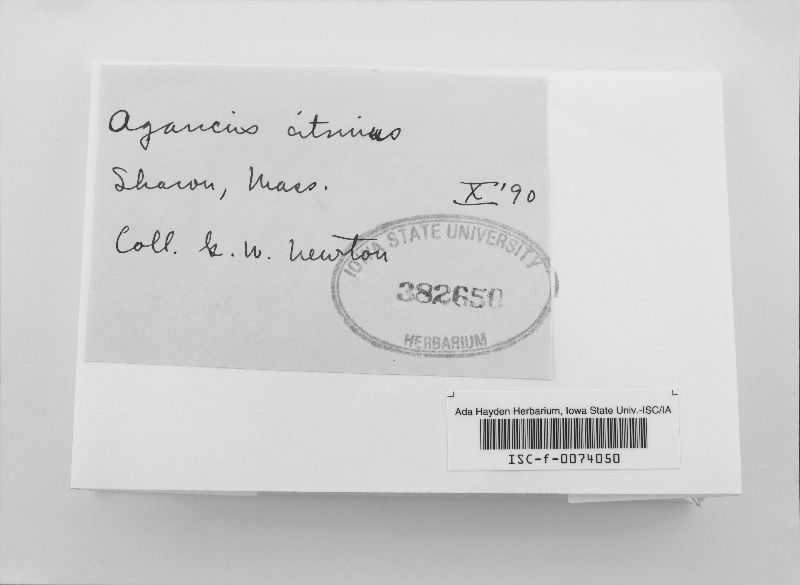 Agaricus citrinus
Sharon, Mass.
X '90
Coll. G. W. Newton
IOWA STATE UNIVERSITY
382650
HERBARIUM
Ada Hayden Herbarium, Iowa State Univ.-ISC/IA
ISC-f-0074050